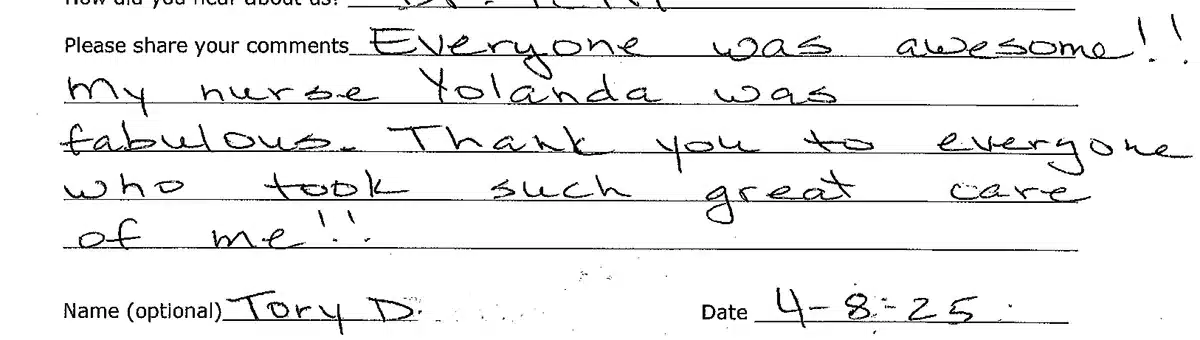 How did you hear about us?
Please share your comments Everyone was awesome!!
My nurse Yolanda was
fabulous. Thank you to everyone
who took such great care
of me!!
Name (optional) Tory D. Date 4-8-25